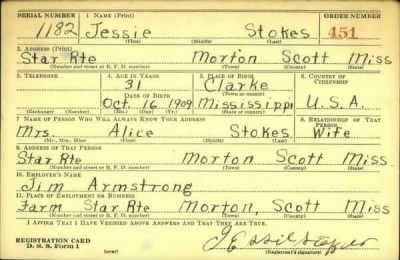 SERIAL NUMBER 1. NAME (Print) ORDER NUMBER
1182 Jessie Stokes 451
(First) (Middle) (Last)
2. ADDRESS (Print)
Star Rte Morton Scott Miss
(Number and street or R. F. D. number) (Town) (County) (State)
3. TELEPHONE 4. AGE IN YEARS 5. PLACE OF BIRTH 6. COUNTRY OF CITIZENSHIP
31 Clarke
DATE OF BIRTH (Town or county)
Oct. 16 1909 Mississippi U.S.A.
(Exchange) (Number) (Mo.) (Day) (Yr.) (State or country)
7. NAME OF PERSON WHO WILL ALWAYS KNOW YOUR ADDRESS 8. RELATIONSHIP OF THAT PERSON
Mrs. Alice Stokes Wife
(Mr., Mrs., Miss) (First) (Middle) (Last)
9. ADDRESS OF THAT PERSON
Star Rte Morton Scott Miss
(Number and street or R. F. D. number) (Town) (County) (State)
10. EMPLOYER'S NAME
Jim Armstrong
11. PLACE OF EMPLOYMENT OR BUSINESS
Farm Star Rte Morton, Scott Miss
(Number and street or R. F. D. number) (Town) (County) (State)
I AFFIRM THAT I HAVE VERIFIED ABOVE ANSWERS AND THAT THEY ARE TRUE.
REGISTRATION CARD
D. S. S. Form 1 (over) (Registrant's signature)